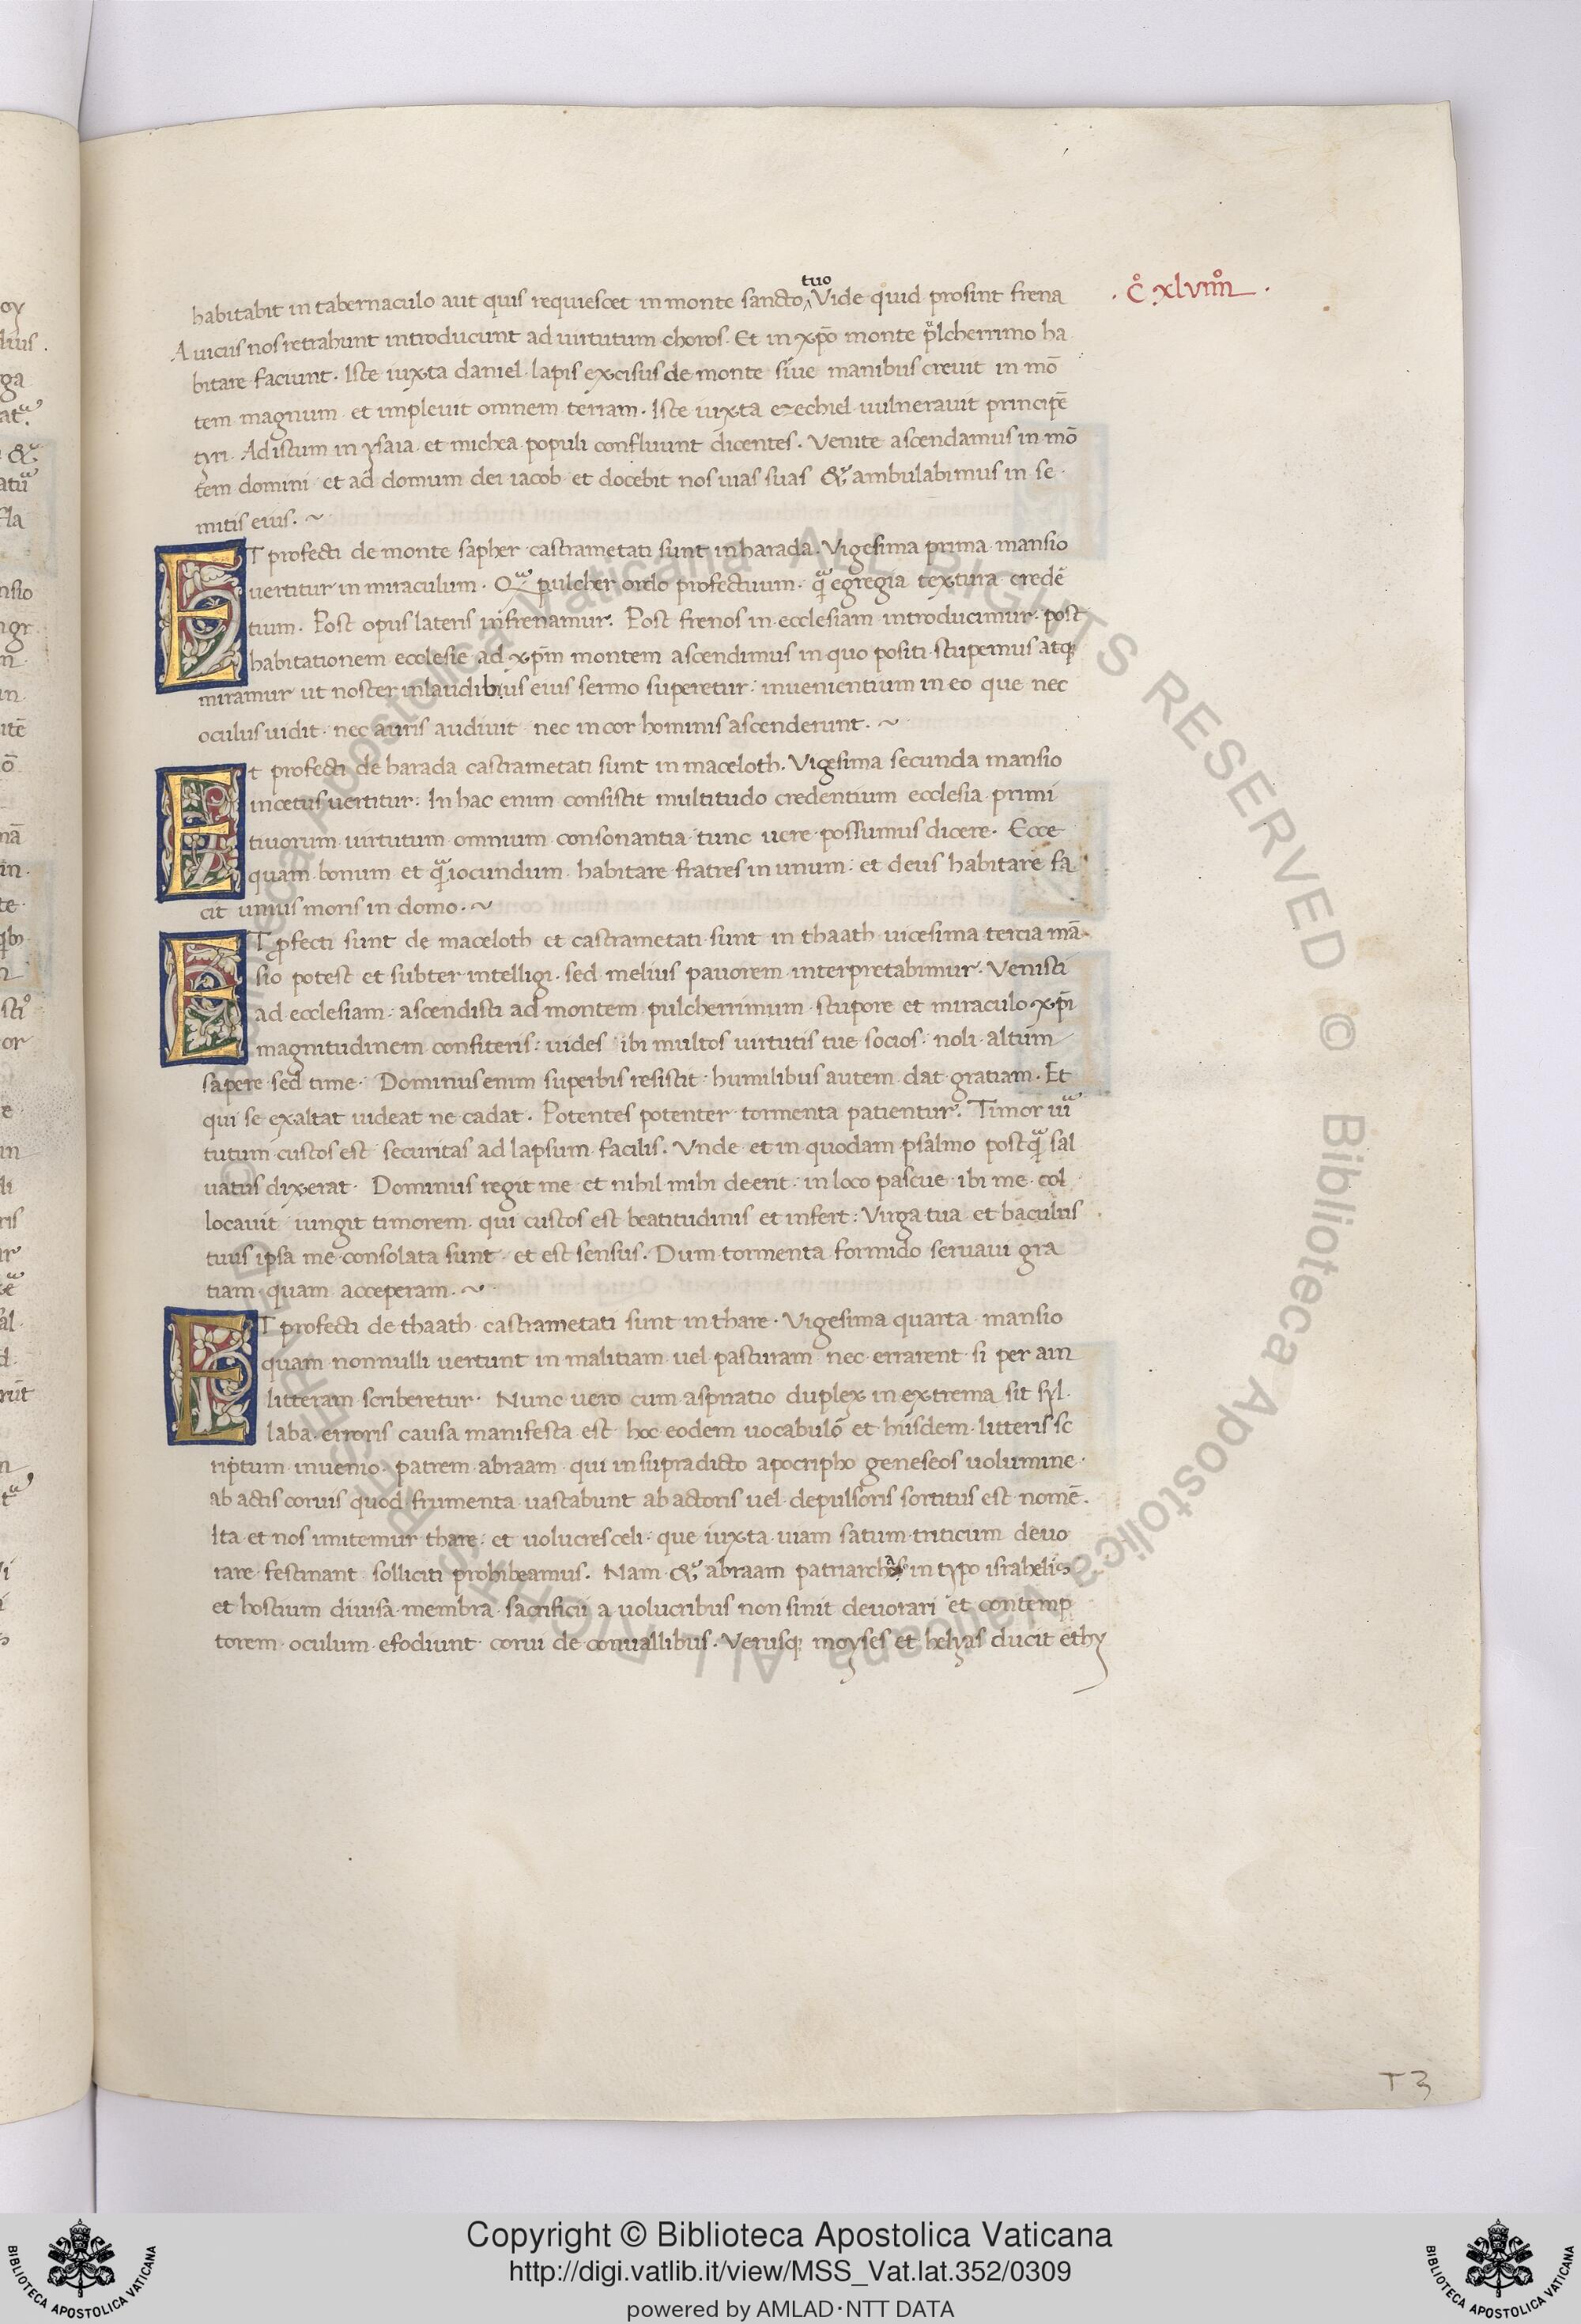 habitabit in tabernaculo aut quis requiescet in monte sancto tuo Vide quid prosint frena
. c̊ xlviiii̊ .
A uicus nos retrahunt introducunt ad uirtutum choros. Et in xp̄o monte pͣlcherrimo ha
bitare faciunt. Iste iuxta daniel lapis excisus de monte siue manibus creuit in mō
tem magnum et impleuit omnem terram. Iste iuxta ezechiel uulnerauit principē
tyri. Ad istum in ysaia et michea populi confluunt dicentes. Venite ascendamus in mō
tem domini et ad domum dei iacob et docebit nos uias suas & ambulabimus in se
mitis eius. ~
ET profecti de monte sapher castrametati sunt in harada. Vigesima prima mansio
uertitur in miraculum. Qͣ pulcher ordo profectuum. qͣ egregia textura credē
tium. Post opus lateris infrenamur. Post frenos in ecclesiam introducimur. post
habitationem ecclesie ad xp̄m montem ascendimus in quo positi stupemus atq;
miramur ut noster in laudibus eius sermo superetur: inuenientium in eo que nec
oculus uidit. nec auris audiuit nec in cor hominis ascenderunt. ~
Et profecti de harada castrametati sunt in maceloth. Vigesima secunda mansio
in cetus uertitur: In hac enim consistit multitudo credentium ecclesia primi
tiuorum uirtutum omnium consonantia tunc uere possumus dicere. Ecce
quam bonum et qͣ iocundum habitare fratres in unum: et deus habitare fa
cit unius moris in domo. ~
ET ꝓfecti sunt de maceloth et castrametati sunt in thaath uicesima tercia mā
sio potest et subter intelligi. sed melius pauorem interpretabimur. Venisti
ad ecclesiam: ascendisti ad montem pulcherrimum stupore et miraculo xp̄i
magnitudinem confiteris: uides ibi multos uirtutis tue socios: noli altum
sapere sed time. Dominus enim superbis resistit humilibus autem dat gratiam. Et
qui se exaltat uideat ne cadat. Potentes potenter tormenta patientur. Timor uiͬ
tutum custos est securitas ad lapsum facilis. Vnde et in quodam psalmo postqͣ sal
uatus dixerat. Dominus regit me et nihil mihi deerit: in loco pascue ibi me col
locauit iungit timorem qui custos est beatitudinis et infert: Virga tua et baculus
tuus ipsa me consolata sunt et est sensus. Dum tormenta formido seruaui gra
tiam quam acceperam. ~
ET profecti de thaath castrametati sunt in thare. Vigesima quarta mansio
quam nonnulli uertunt in malitiam uel pasturam nec errarent si per ain
litteram scriberetur. Nunc uero cum aspiratio duplex in extrema sit syl
laba erroris causa manifesta est hoc eodem uocabulo et hiisdem litteris sc
riptum inuenio patrem abraam qui in supradicto apocripho geneseos uolumine
ab actis coruis quod frumenta uastabunt ab actoris uel depulsoris sortitus est nomē.
Ita et nos imitemur thare: et uolucres celi que iuxta uiam satum triticum deuo
rare festinant solliciti prohibeamus. Nam & abraam patriarcha in typo israhelis
et hostium diuisa membra sacrificii a uolucribus non sinit deuorari et contemp
torem oculum efodiunt corui de conuallibus. Verusq; moyses et helyas ducit ethy
T 3
Copyright © Biblioteca Apostolica Vaticana
http://digi.vatlib.it/view/MSS_Vat.lat.352/0309
powered by AMLAD·NTT DATA